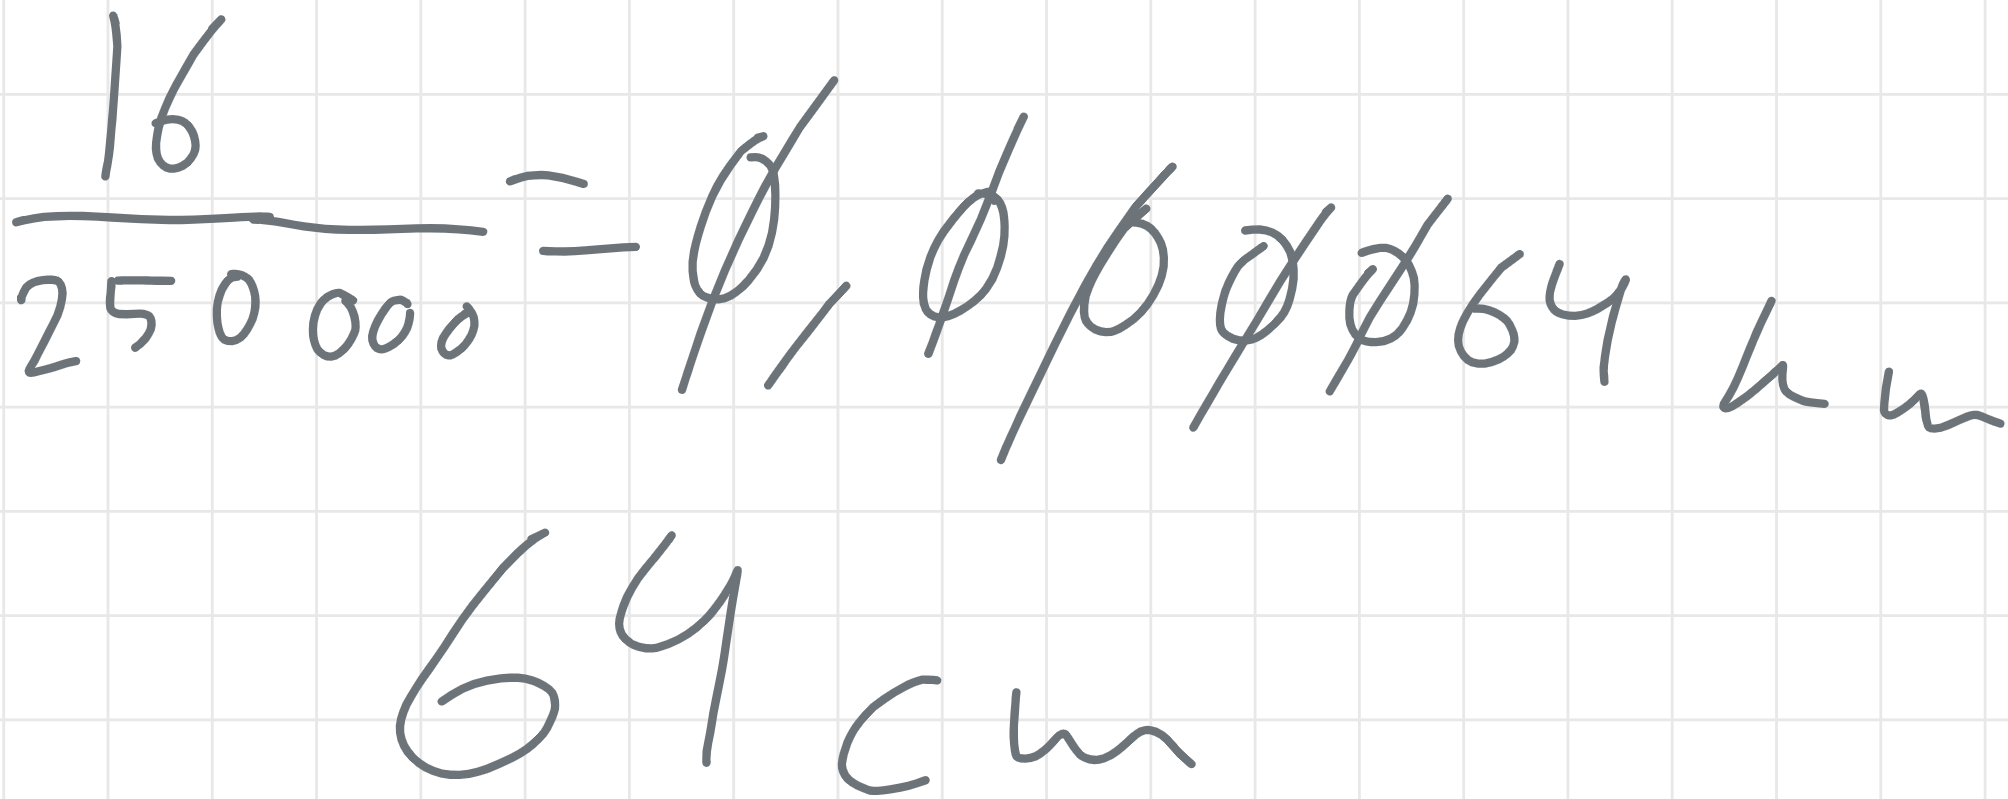 16
250 000 = 0,000064 km
64 cm